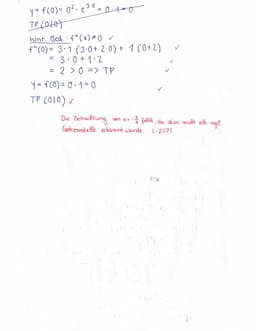 y = f(0) = 0² · e^3·0 = 0 · 1 = 0
TP (0|0)
Hinr. Bed.: f''(x) ≠ 0 ✓
f''(0) = 3·1 (3·0 + 2·0) + 1 (0+2) ✓
= 3·0 + 1·2 ✓
= 2 > 0 => TP ✓
y = f(0) = 0·1 = 0 ✓
TP (0|0) ✓
Die Betrachtung von x = -2/3 fehlt, da dies nicht als mgl.
Extremstelle erkannt wurde. (-2SP)